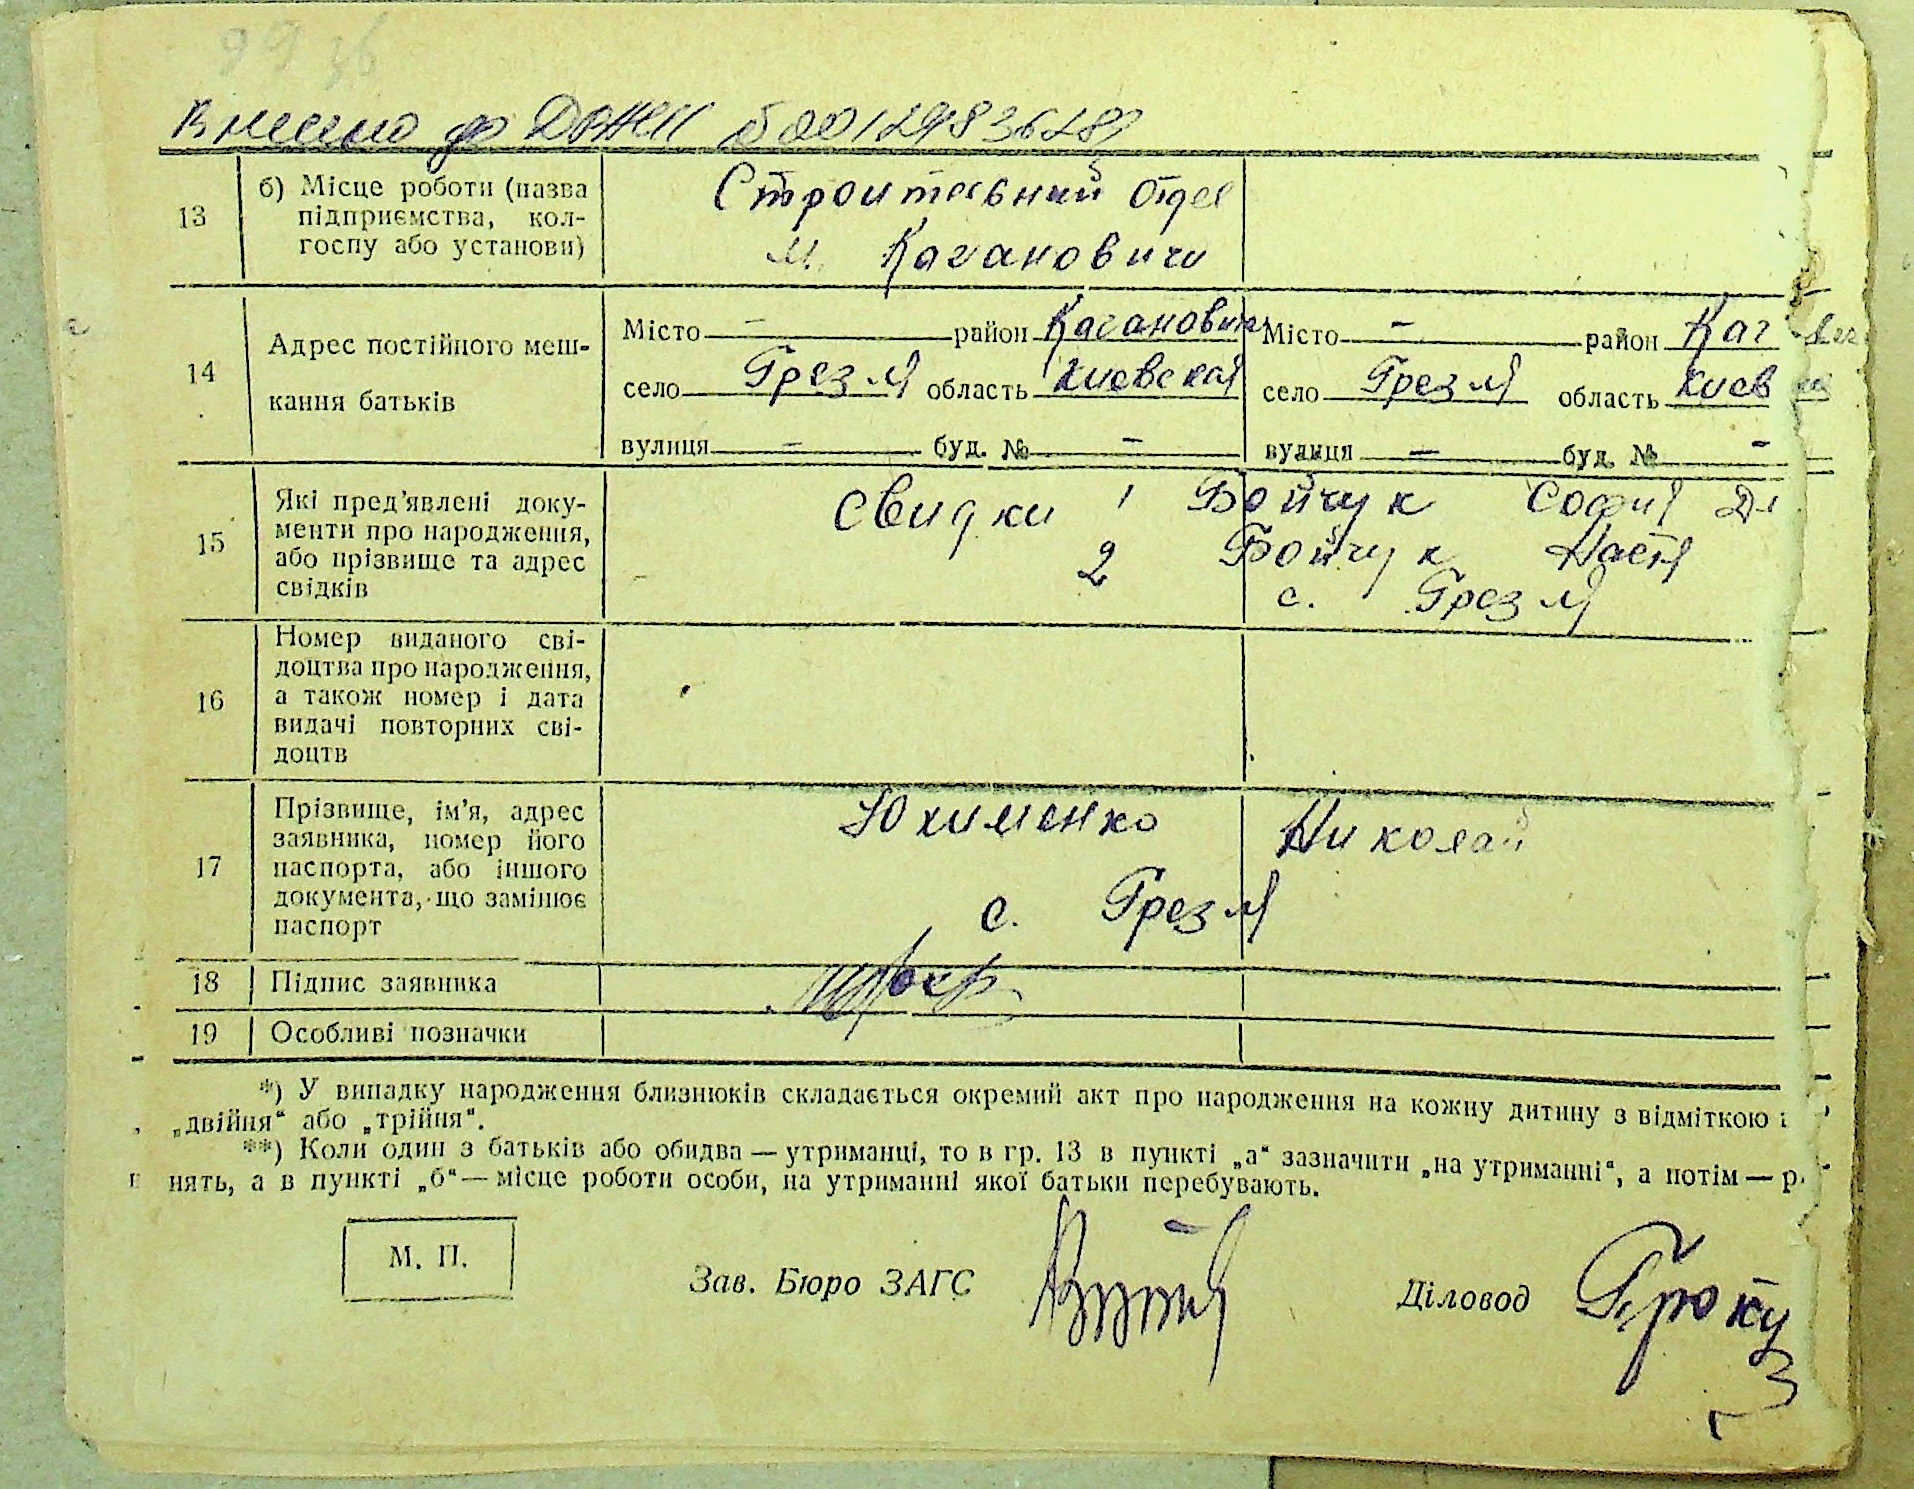 99 зб
Внесено до ДРАЦС
13
б) Місце роботи (назва
підприємства, кол-
госпу або установи)
Строительний отдел
м. Кагановичи
14
Адрес постійного меш-
кання батьків
Місто — район Каганович
село Грезля область Киевская
вулиця — буд. № —
Місто — район Каг
село Грезля область Киев
вулиця — буд. № —
15
Які пред'явлені доку-
менти про народження,
або прізвище та адрес
свідків
Свидки 1 Бойчук София
2 Бойчук Настя
с. Грезля
16
Номер виданого сві-
доцтва про народження,
а також номер і дата
видачі повторних сві-
доцтв
17
Прізвище, ім'я, адрес
заявника, номер його
паспорта, або іншого
документа, що замінює
паспорт
Юхименко Николай
с. Грезля
18
Підпис заявника
19
Особливі позначки
*) У випадку народження близнюків складається окремий акт про народження на кожну дитину з відміткою
„двійня“ або „трійня“.
**) Коли один з батьків або обидва — утриманці, то в гр. 13 в пункті „а“ зазначити „на утриманні“, а потім — р
нять, а в пункті „б“ — місце роботи особи, на утриманні якої батьки перебувають.
М. П.
Зав. Бюро ЗАГС
Діловод